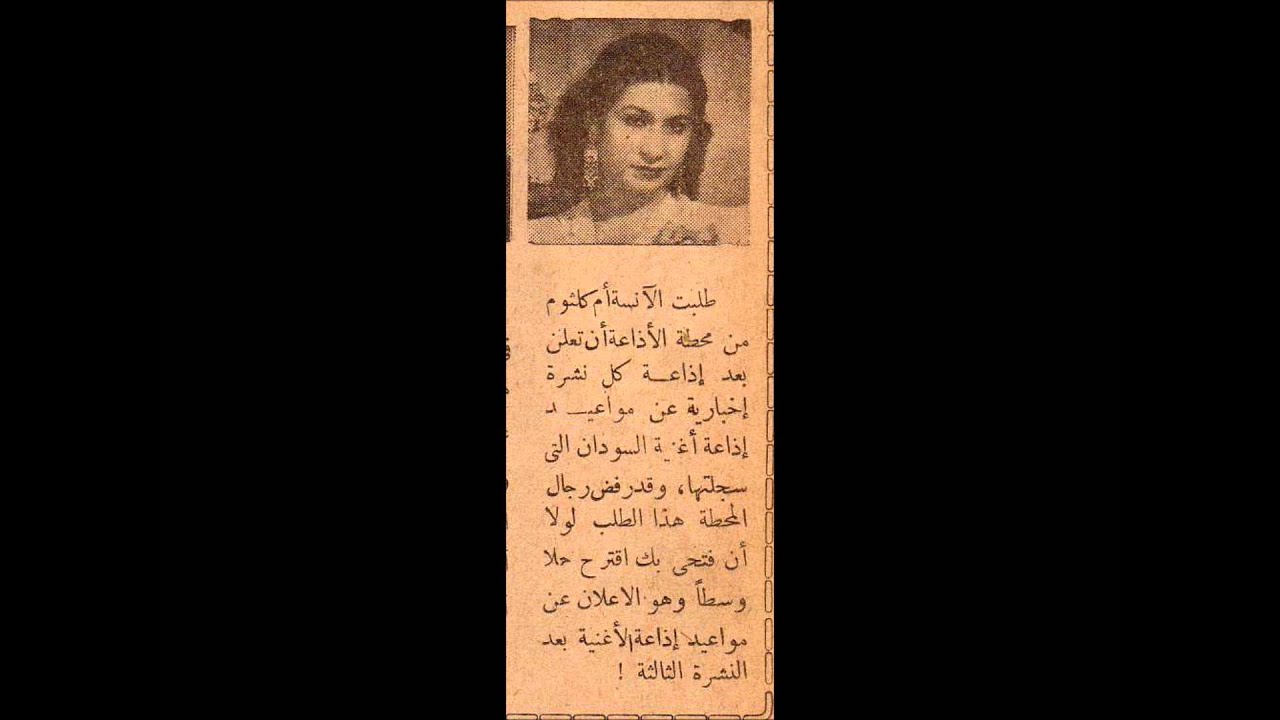 طلبت الآنسة أم كلثوم
من محطة الأذاعة أن تعلن
بعد إذاعة كل نشرة
إخبارية عن مواعيد
إذاعة أغنية السودان التى
سجلتها، وقد رفض رجال
المحطة هذا الطلب لولا
أن فتحى بك اقترح حلا
وسطاً وهو الاعلان عن
مواعيد إذاعة الأغنية بعد
النشرة الثالثة !